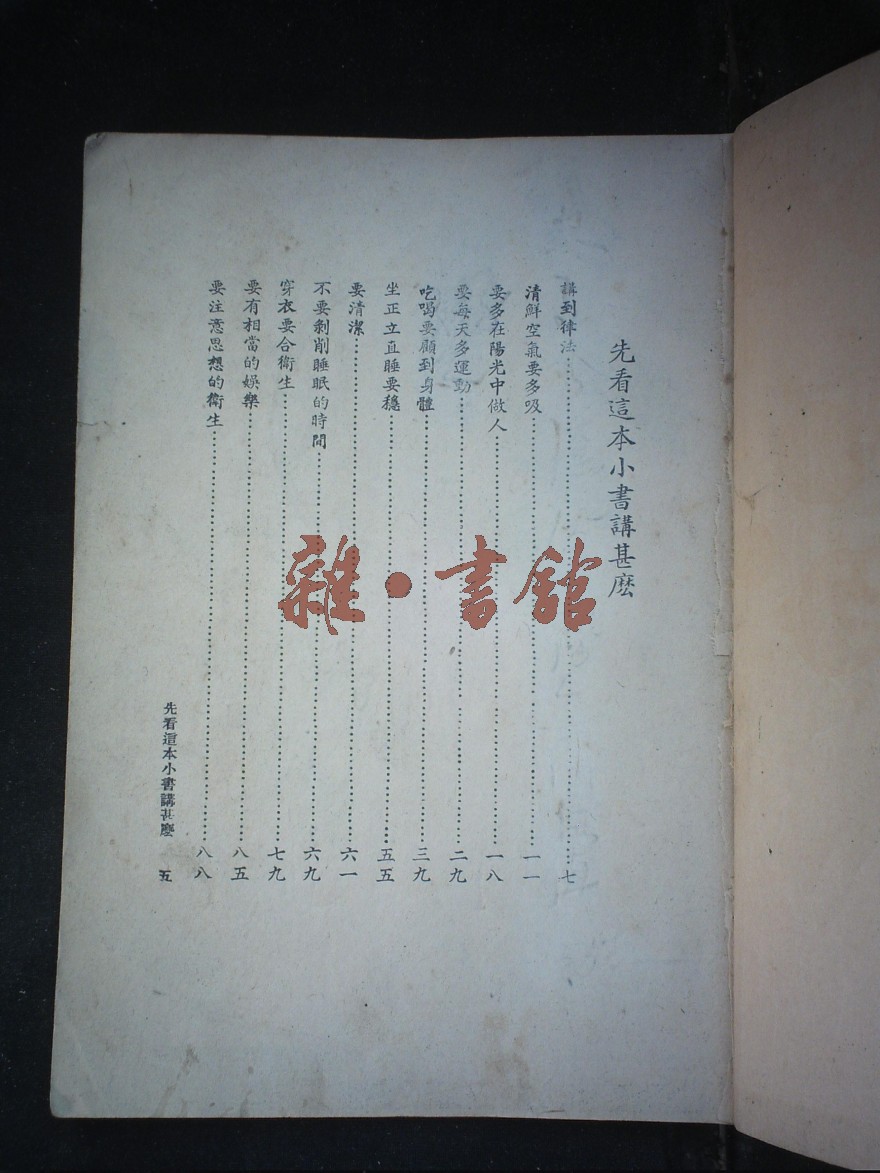 先看這本小書講甚麼
講到律法……七
清鮮空氣要多吸……一一
要多在陽光中做人……一八
要每天多運動……二九
吃喝要顧到身體……三九
坐正立直睡要穩……五五
要清潔……六一
不要剝削睡眠的時間……六九
穿衣要合衛生……七九
要有相當的娛樂……八五
要注意思想的衛生……八八
先看這本小書講甚麼 五
雜·書館